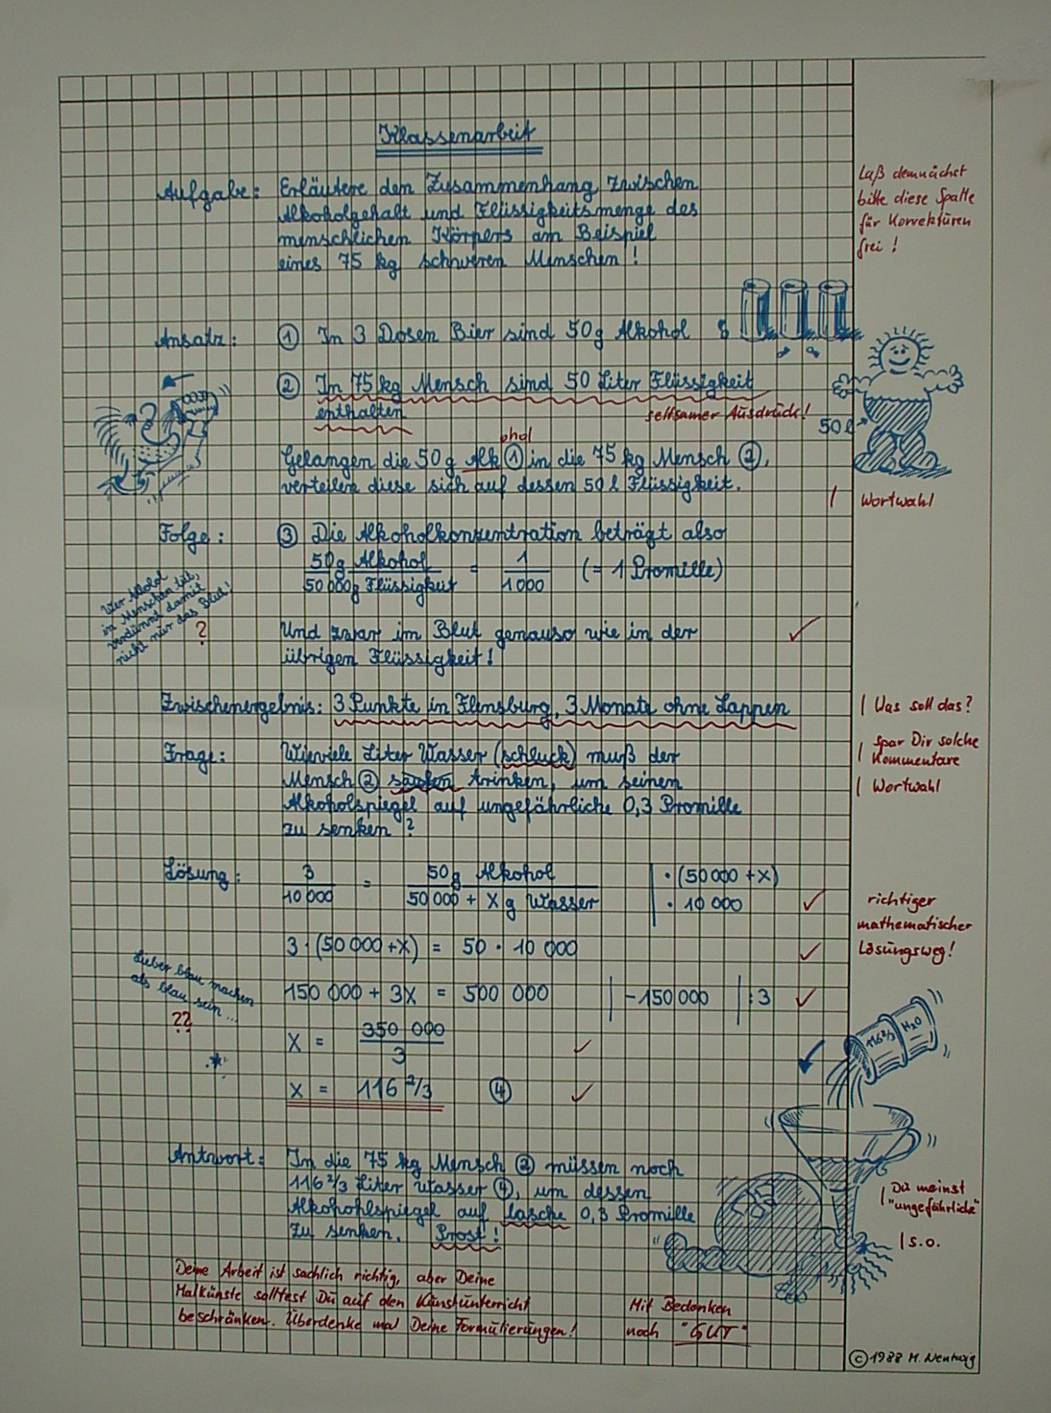 Klassenarbeit
Laß demnächst
bitte diese Spalte
für Korrekturen
frei !
Aufgabe: Erläutere den Zusammenhang zwischen
Alkoholgehalt und Flüssigkeitsmenge des
menschlichen Körpers am Beispiel
eines 75 kg schweren Menschen !
Ansatz: ① In 3 Dosen Bier sind 50g Alkohol
② In 75 kg Mensch sind 50 Liter Flüssigkeit
enthalten
seltsamer Ausdruck!
50 l
ohol
Gelangen die 50 g Alk ① in die 75 kg Mensch ②,
verteilen diese sich auf dessen 50 l Flüssigkeit.
| Wortwahl
Folge: ③ Die Alkoholkonzentration beträgt also
50g Alkohol / 50 000g Flüssigkeit = 1 / 1000 (= 1 Promille)
Wer Alkohol
in Menschen tut,
verdünnt damit
nicht nur das Blut!
?
Und zwar im Blut genauso wie in der
übrigen Flüssigkeit!
Zwischenergebnis: 3 Punkte in Flensburg, 3 Monate ohne Lappen
| Was soll das?
Frage: Wieviele Liter Wasser (schluck) muß der
| Spar Dir solche
Kommentare
Mensch ② saufen trinken, um seinen
| Wortwahl
Alkoholspiegel auf ungefährliche 0,3 Promille
zu senken ?
Lösung: 3 / 10 000 = 50g Alkohol / 50 000 + X g Wasser | · (50 000 + X) | · 10 000
richtiger
mathematischer
Lösungsweg!
3 · (50 000 + X) = 50 · 10 000
Lieber blau machen
als blau sein ...
??
150 000 + 3X = 500 000 | - 150 000 | : 3
X = 350 000 / 3
X = 116 2/3 ④
116 2/3 H2O
Antwort: In die 75 kg Mensch ② müssen noch
116 2/3 Liter Wasser ④, um dessen
Alkohohlspiegel auf lasche 0,3 Promille
zu senken. Prost !
| Du meinst
"ungefährliche"
| s.o.
Deine Arbeit ist sachlich richtig, aber Deine
Malkünste solltest Du auf den Kunstunterricht
beschränken. Überdenke mal Deine Formulierungen!
Mit Bedenken
noch "GUT"
© 1988 M. Nentwig